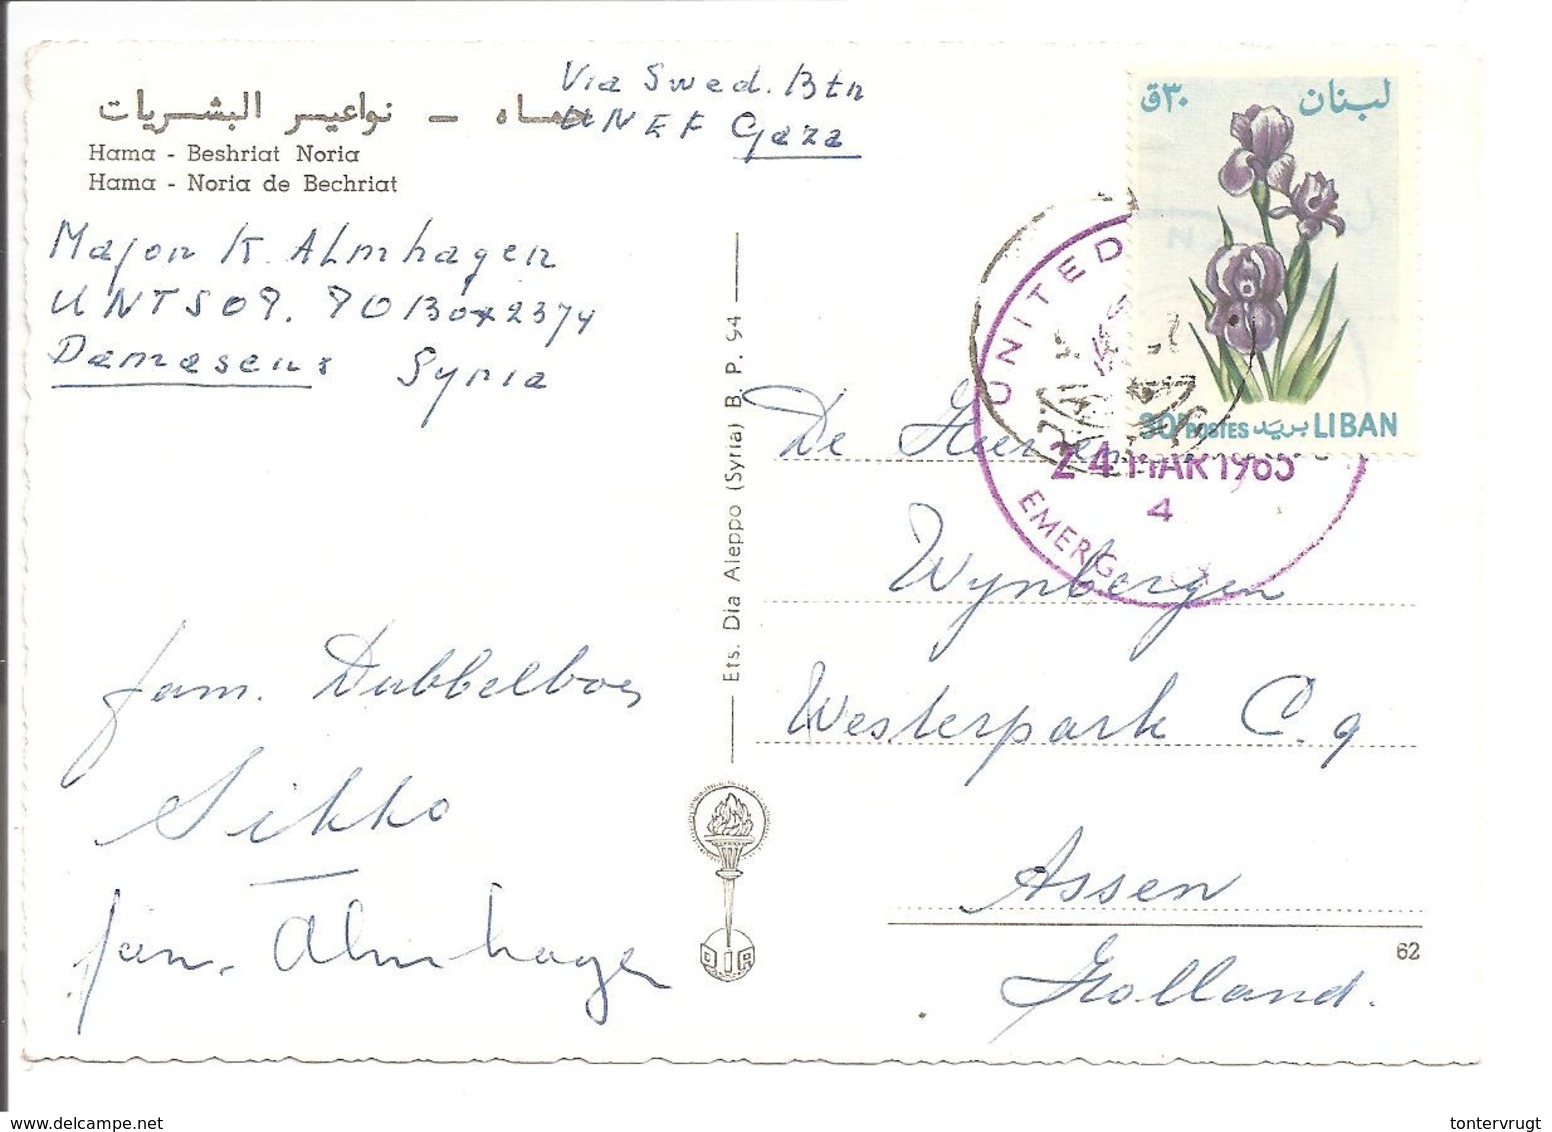 حماه - نواعير البشريات
Hama - Beshriat Noria
Hama - Noria de Bechriat
Via Swed. Btn
UNEF Gaza
Major K. Almhagen
UNTSOP. PO Box 2374
Damascus Syria
fam. Dubbelboer
Sikko
fam. Almhagen
Ets. Dia Aleppo (Syria) B. P. 94
DIA
لبنان
ق٣٠
30P POSTES بريد LIBAN
UNITED
24 MAR 1965
4
EMERG
De Heer en
Wynbergen
Westerpark C.q
Assen
Holland.
62
tontervrugt